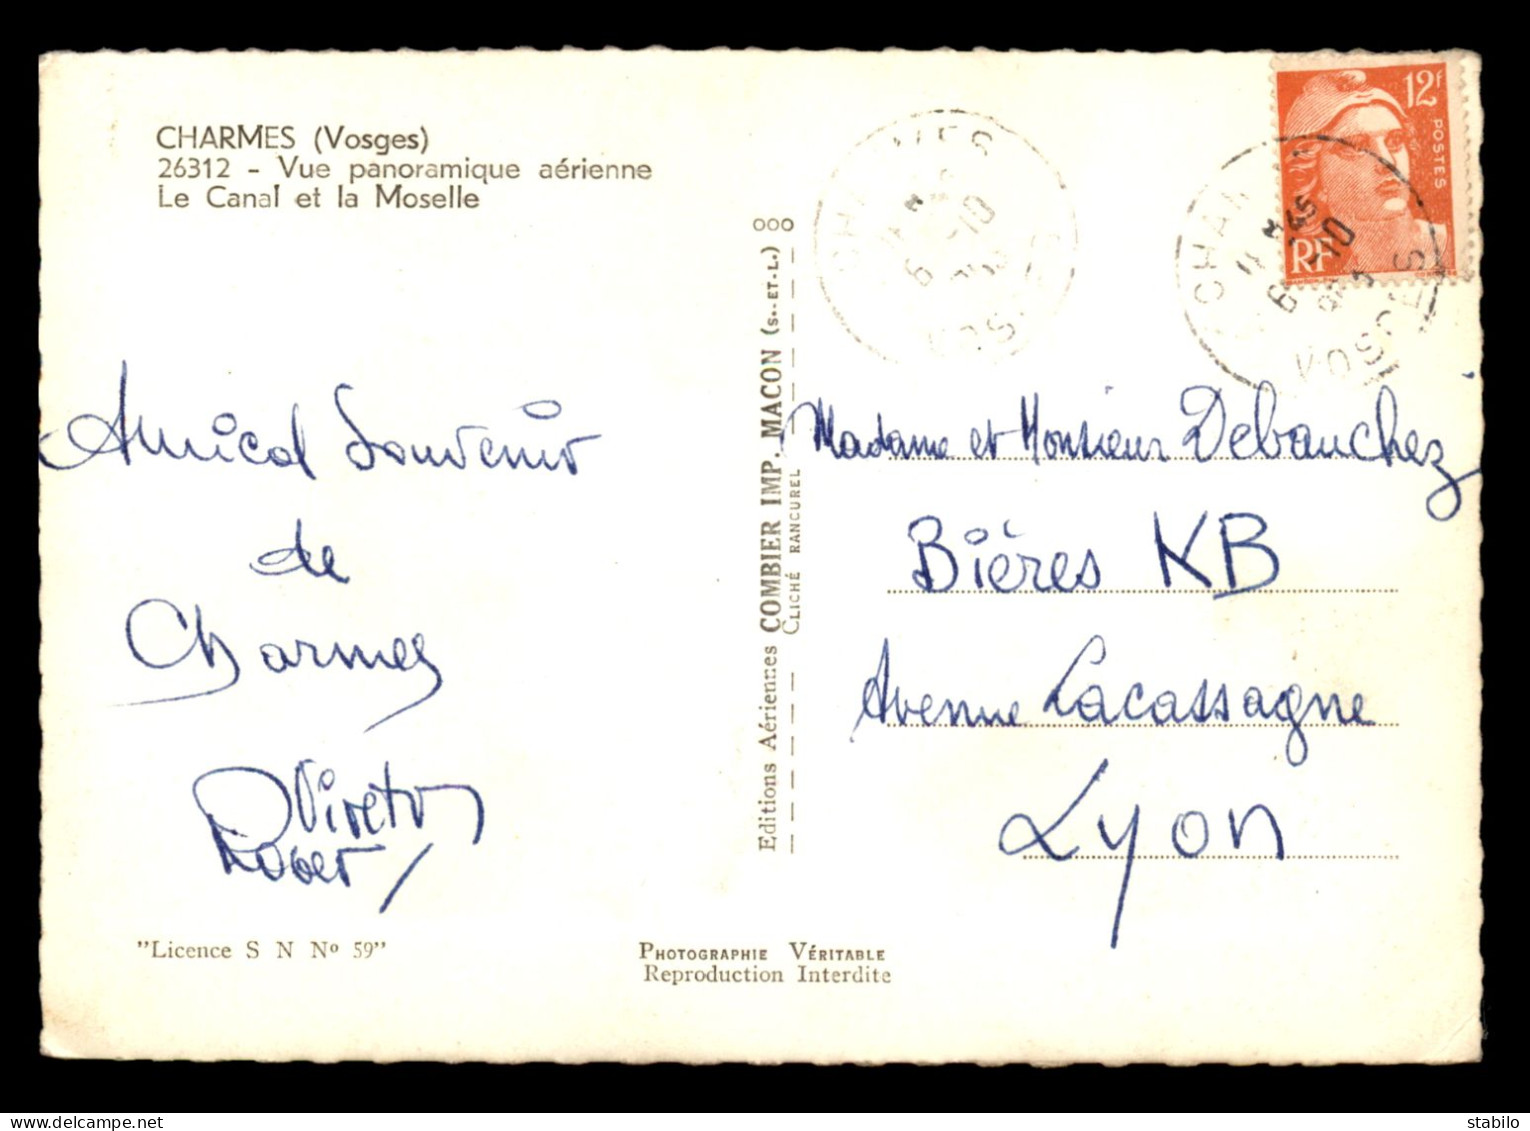 CHARMES (Vosges)
26312 - Vue panoramique aérienne
Le Canal et la Moselle
Amical Souvenir
de
Charmes
Roger
"Licence S N Nº 59"
ooo
Editions Aériennes COMBIER IMP. MACON (S.-ET-L.)
CLICHÉ RANCUREL
PHOTOGRAPHIE VÉRITABLE
Reproduction Interdite
12f
POSTES
RF
CHARMES
VOSGES
Madame et Monsieur Debauchez
Bières KB
Avenue Lacassagne
Lyon
stabilo